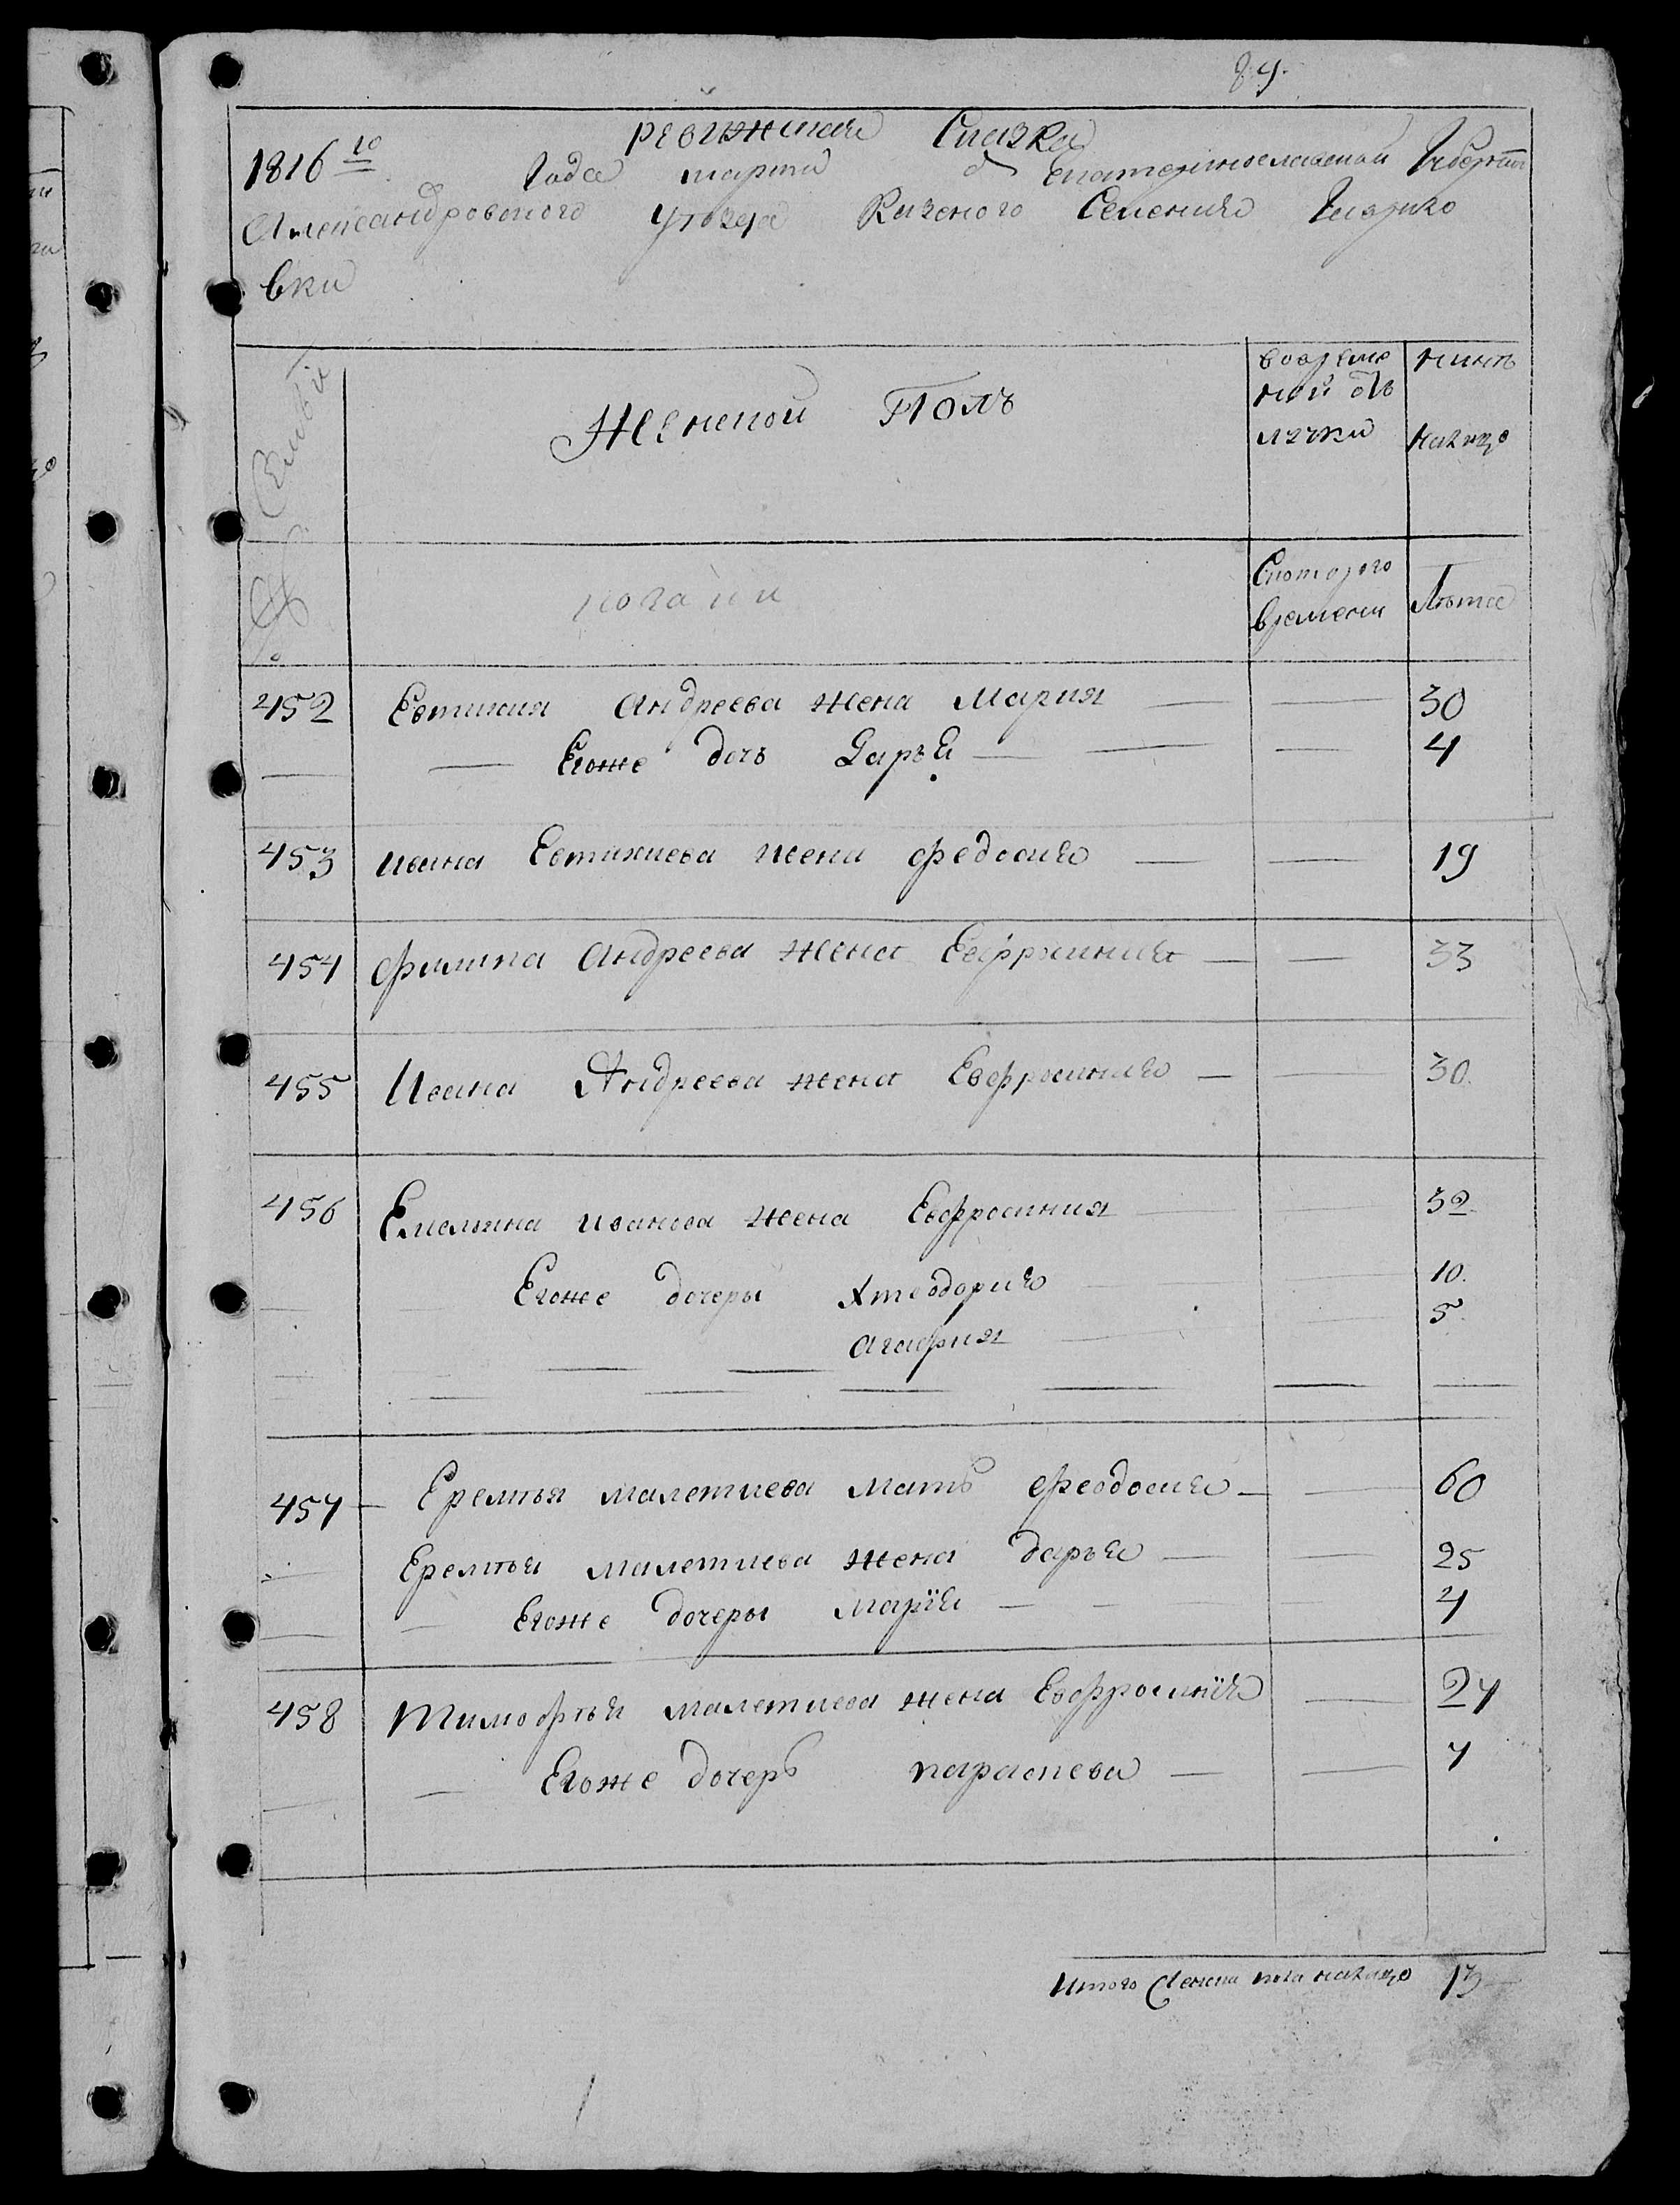 84.
ревижская Сказка
1816го Года марта д Екатеринославской Губернии
Александровского Уезда Казеного Селения
вки
Семьи
Женской Полъ
вовремѣ
ной отъ
лучки
нынѣ
налицо
№
Скоторого
времени
Лѣта
452 Евтихия Андреева жена Мария — — 30
— — Егоже дочь Дарья — — — 4
453 ивана Евтихиева жена федосия — — 19
454 филипа Андреева жена Евфросиния — — 33
455 Ивана Андреева жена Евфросиния — — 30.
456 Емелияна иванова жена Евфросиния — — 32.
Егоже дочеры 10.
агафия — — 5.
457 — Еремѣя малетиева мать феодосия — — 60
Еремѣя малетиева жена дарья — — 25
— — Егоже дочеры Марїя — — — 4
458 Тимофѣя малетиева жена Евфросинїя — 24
— — Егоже дочерь параскева — — 4
Итого Женска пола налицо 13